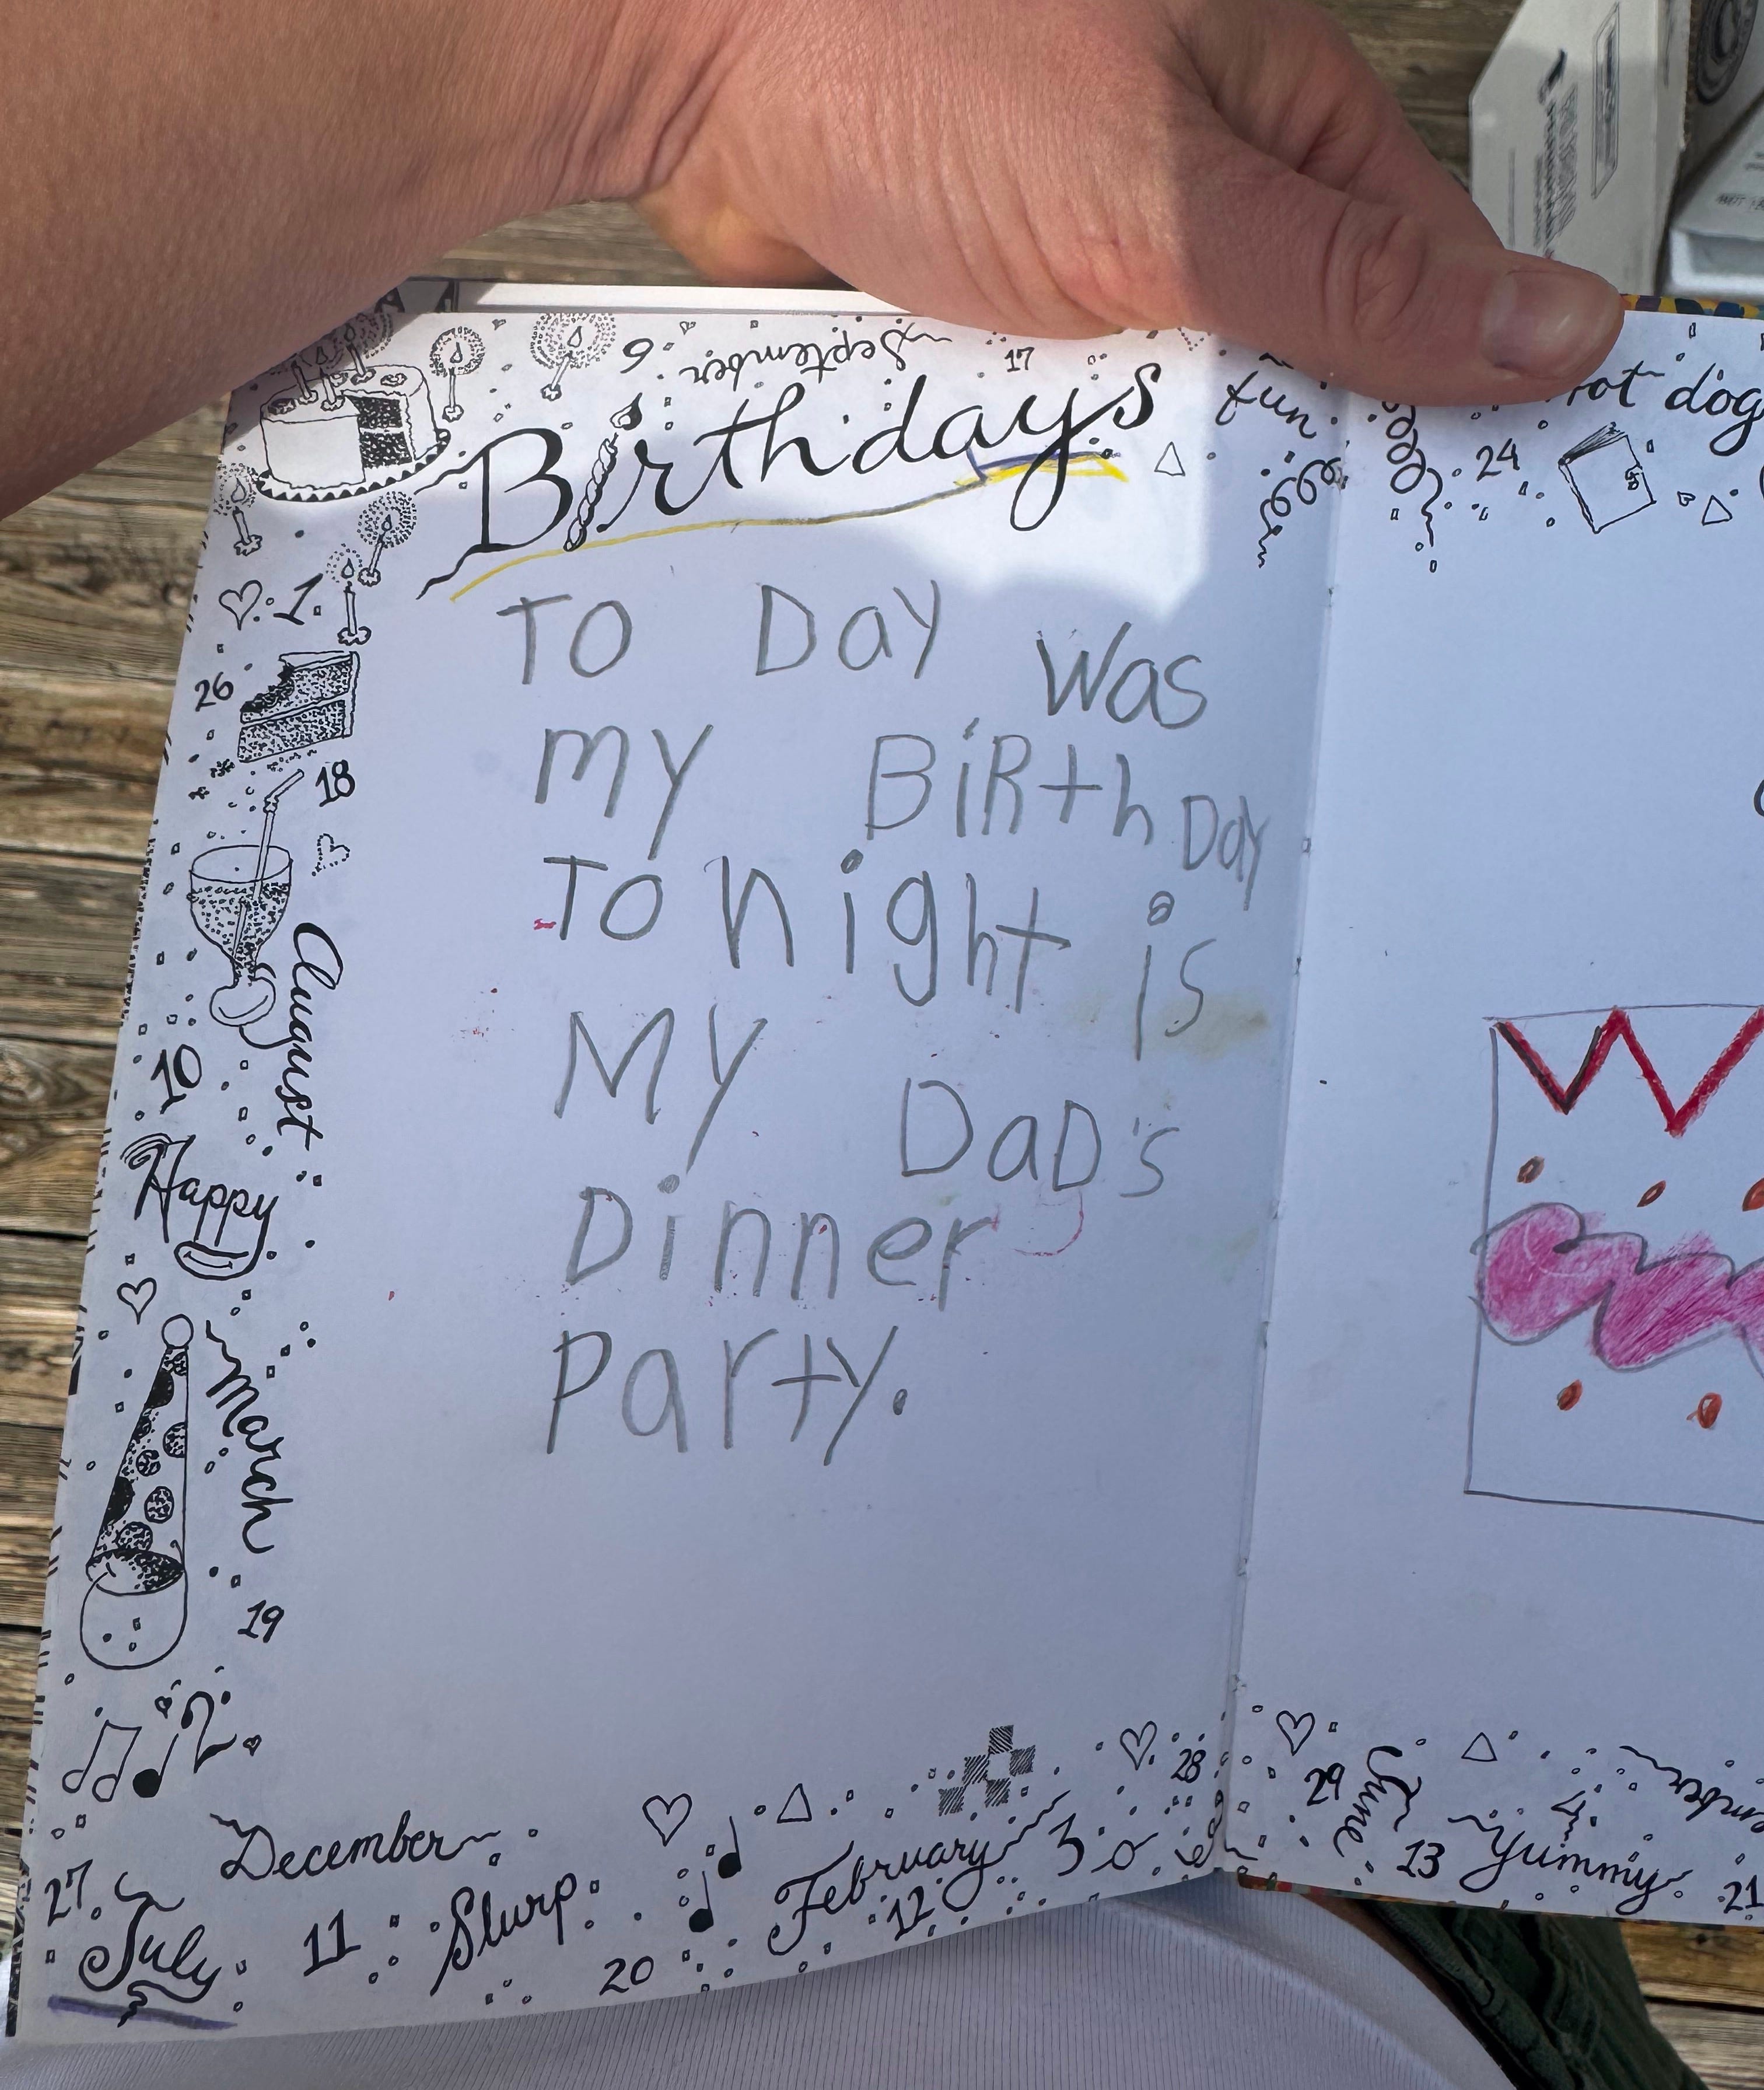 September
6
17
Birthdays
fun
hot dog
24
To Day was
my BiRth Day
To night is
My DaD's
Dinner
Party.
1
26
18
August
10
Happy
March
19
28
29
June
December
February
3
Yummy
13
21
27
July
11
Slurp
20
12